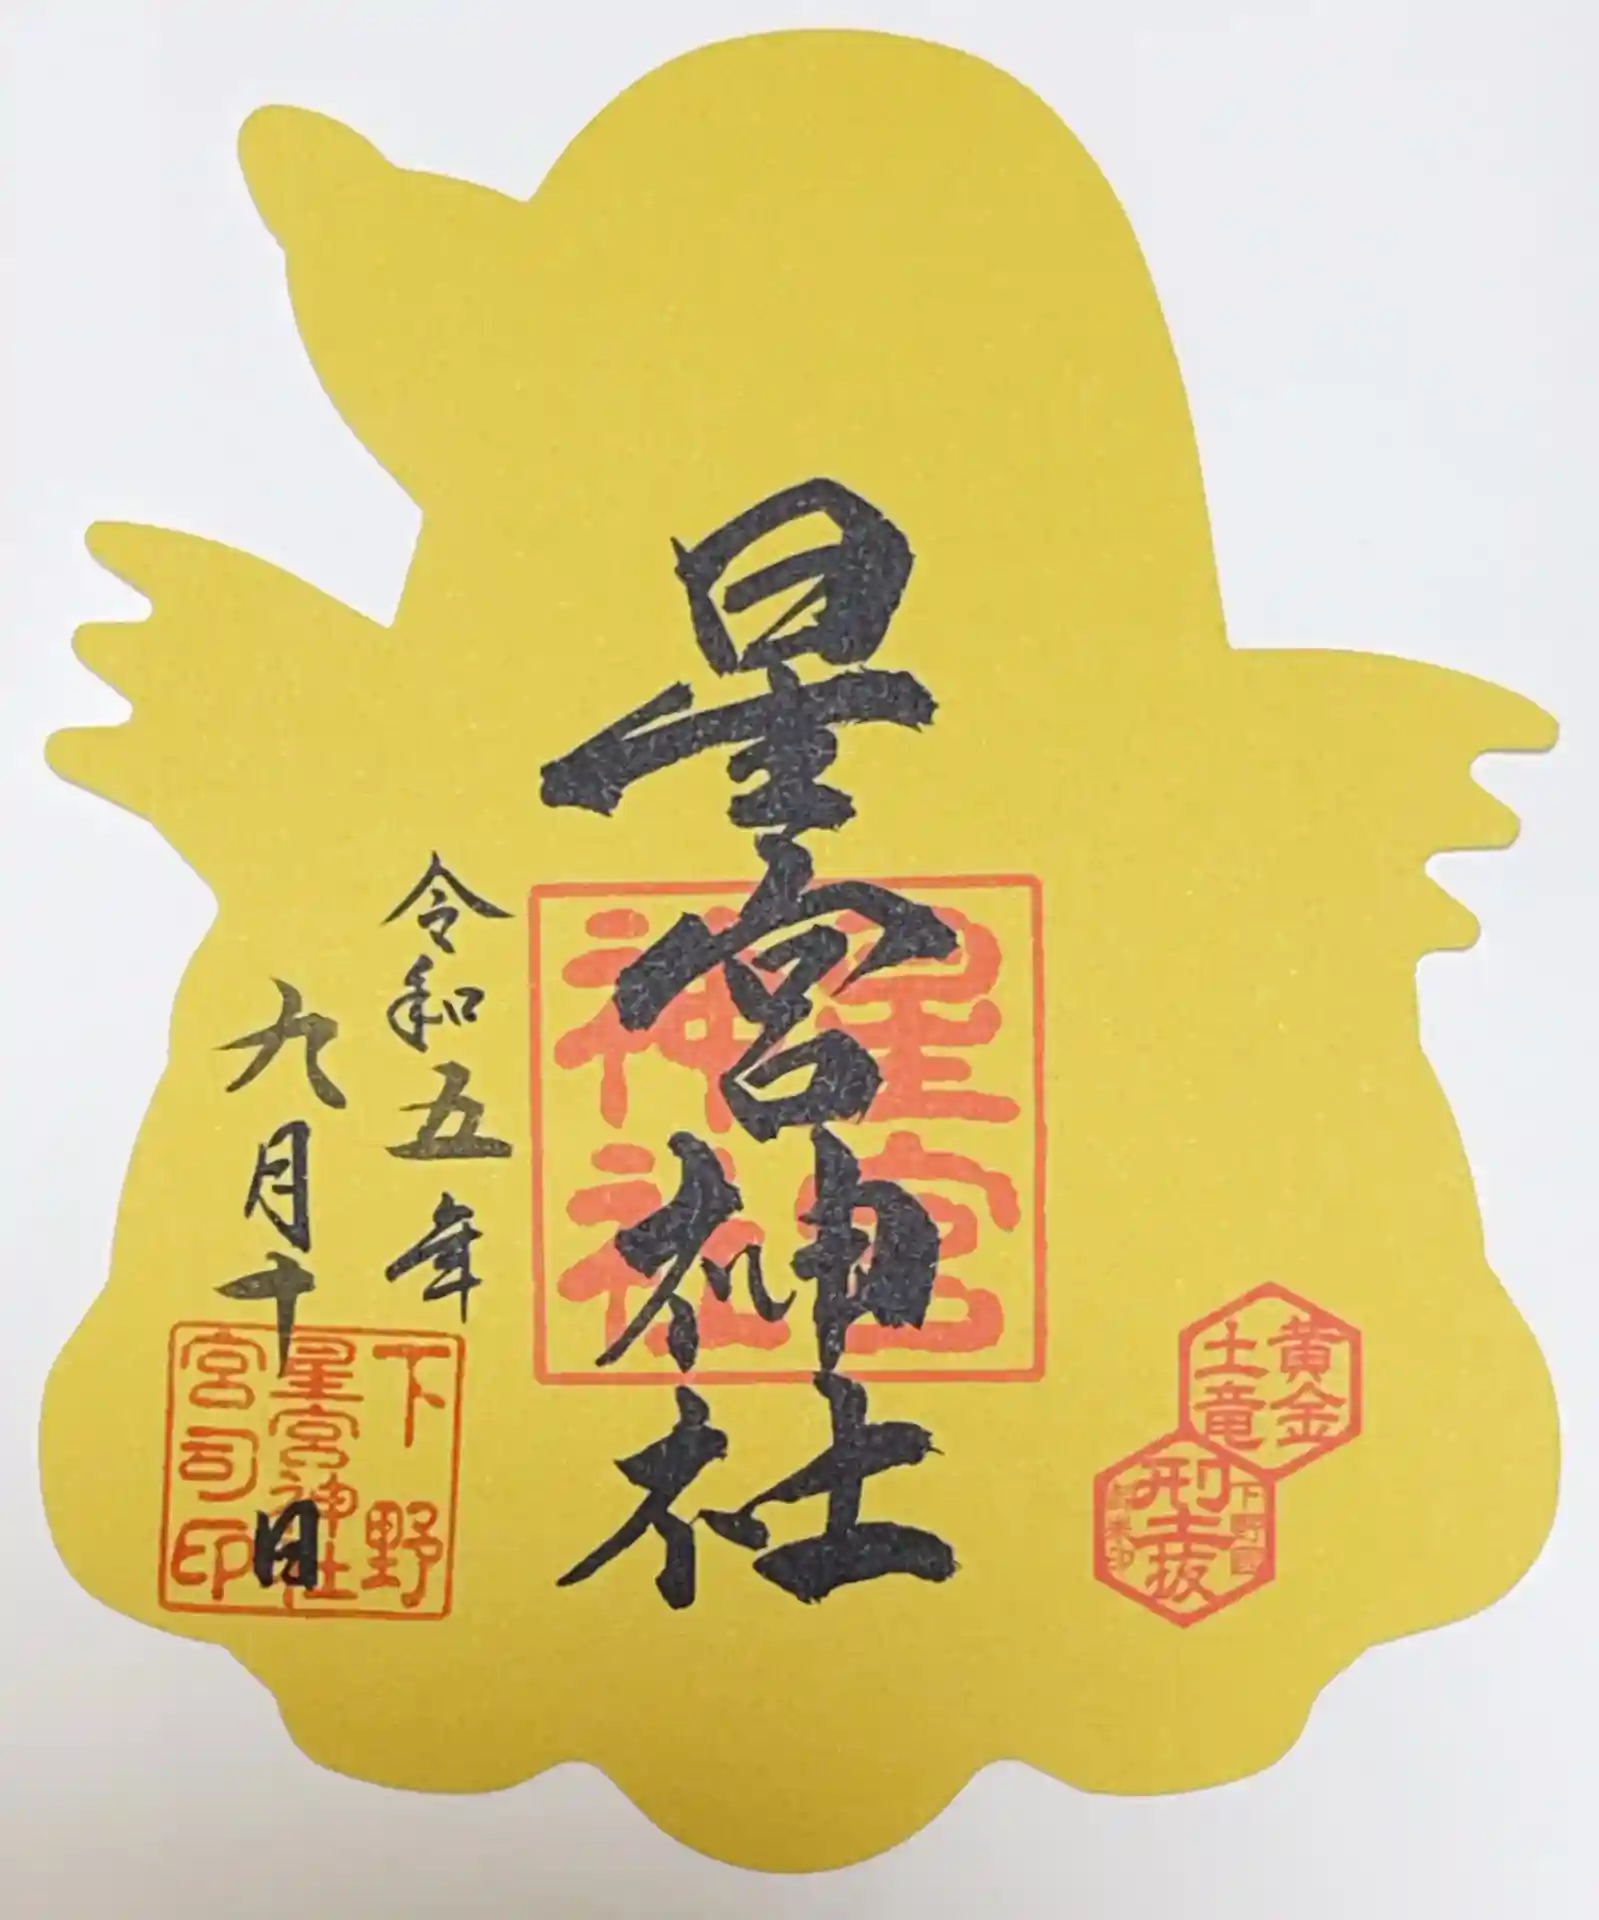 星宮神社
星宮
神社
令和五年
九月十日
下野
星宮神社
宮司印
黄金
土竜
刑土抜
下野國